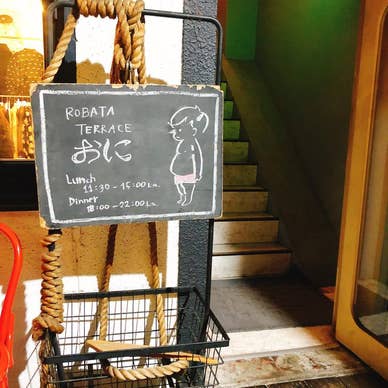 ROBATA
TERRACE
おに
Lunch
11:30 - 15:00 L.o.
Dinner
18:00 - 22:00 L.o.